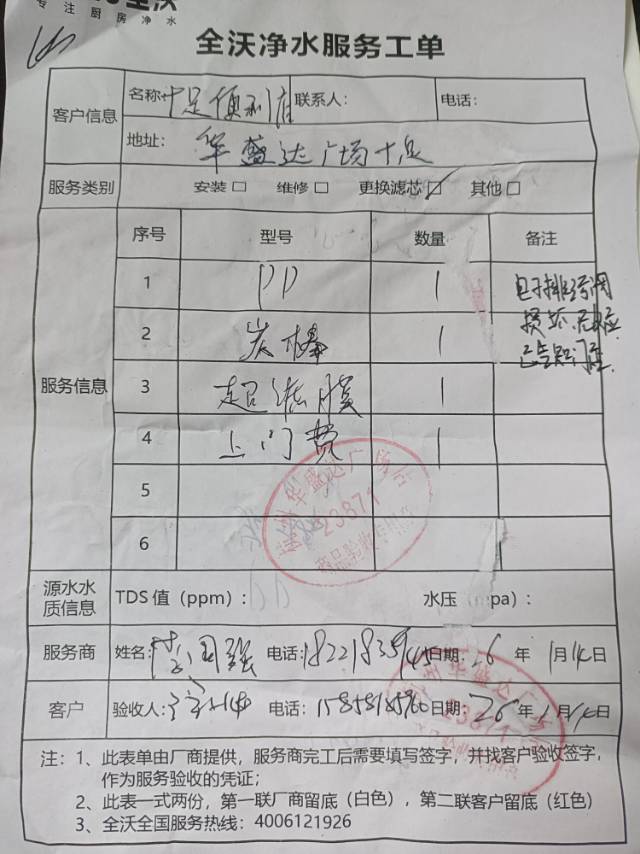 全沃
专注厨房净水
全沃净水服务工单
客户信息
名称 十足便利店 联系人： 电话：
地址： 华盛达广场十足
服务类别 安装□ 维修□ 更换滤芯☑ 其他□
服务信息
序号 型号 数量 备注
1 PP 1
2 炭棒 1
3 超滤膜 1
4 上门费 1
5
6
损坏
已告知门店
华盛达广
23871
源水水质信息 TDS 值（ppm）： 水压（mpa）：
服务商 姓名：李国强 电话：日期：26 年 1月14日
客户 验收人： 电话：日期：26 年 1月14日
州华盛达广
23871
注：1、此表单由厂商提供，服务商完工后需要填写签字，并找客户验收签字，
作为服务验收的凭证；
2、此表一式两份，第一联厂商留底（白色），第二联客户留底（红色）
3、全沃全国服务热线：4006121926